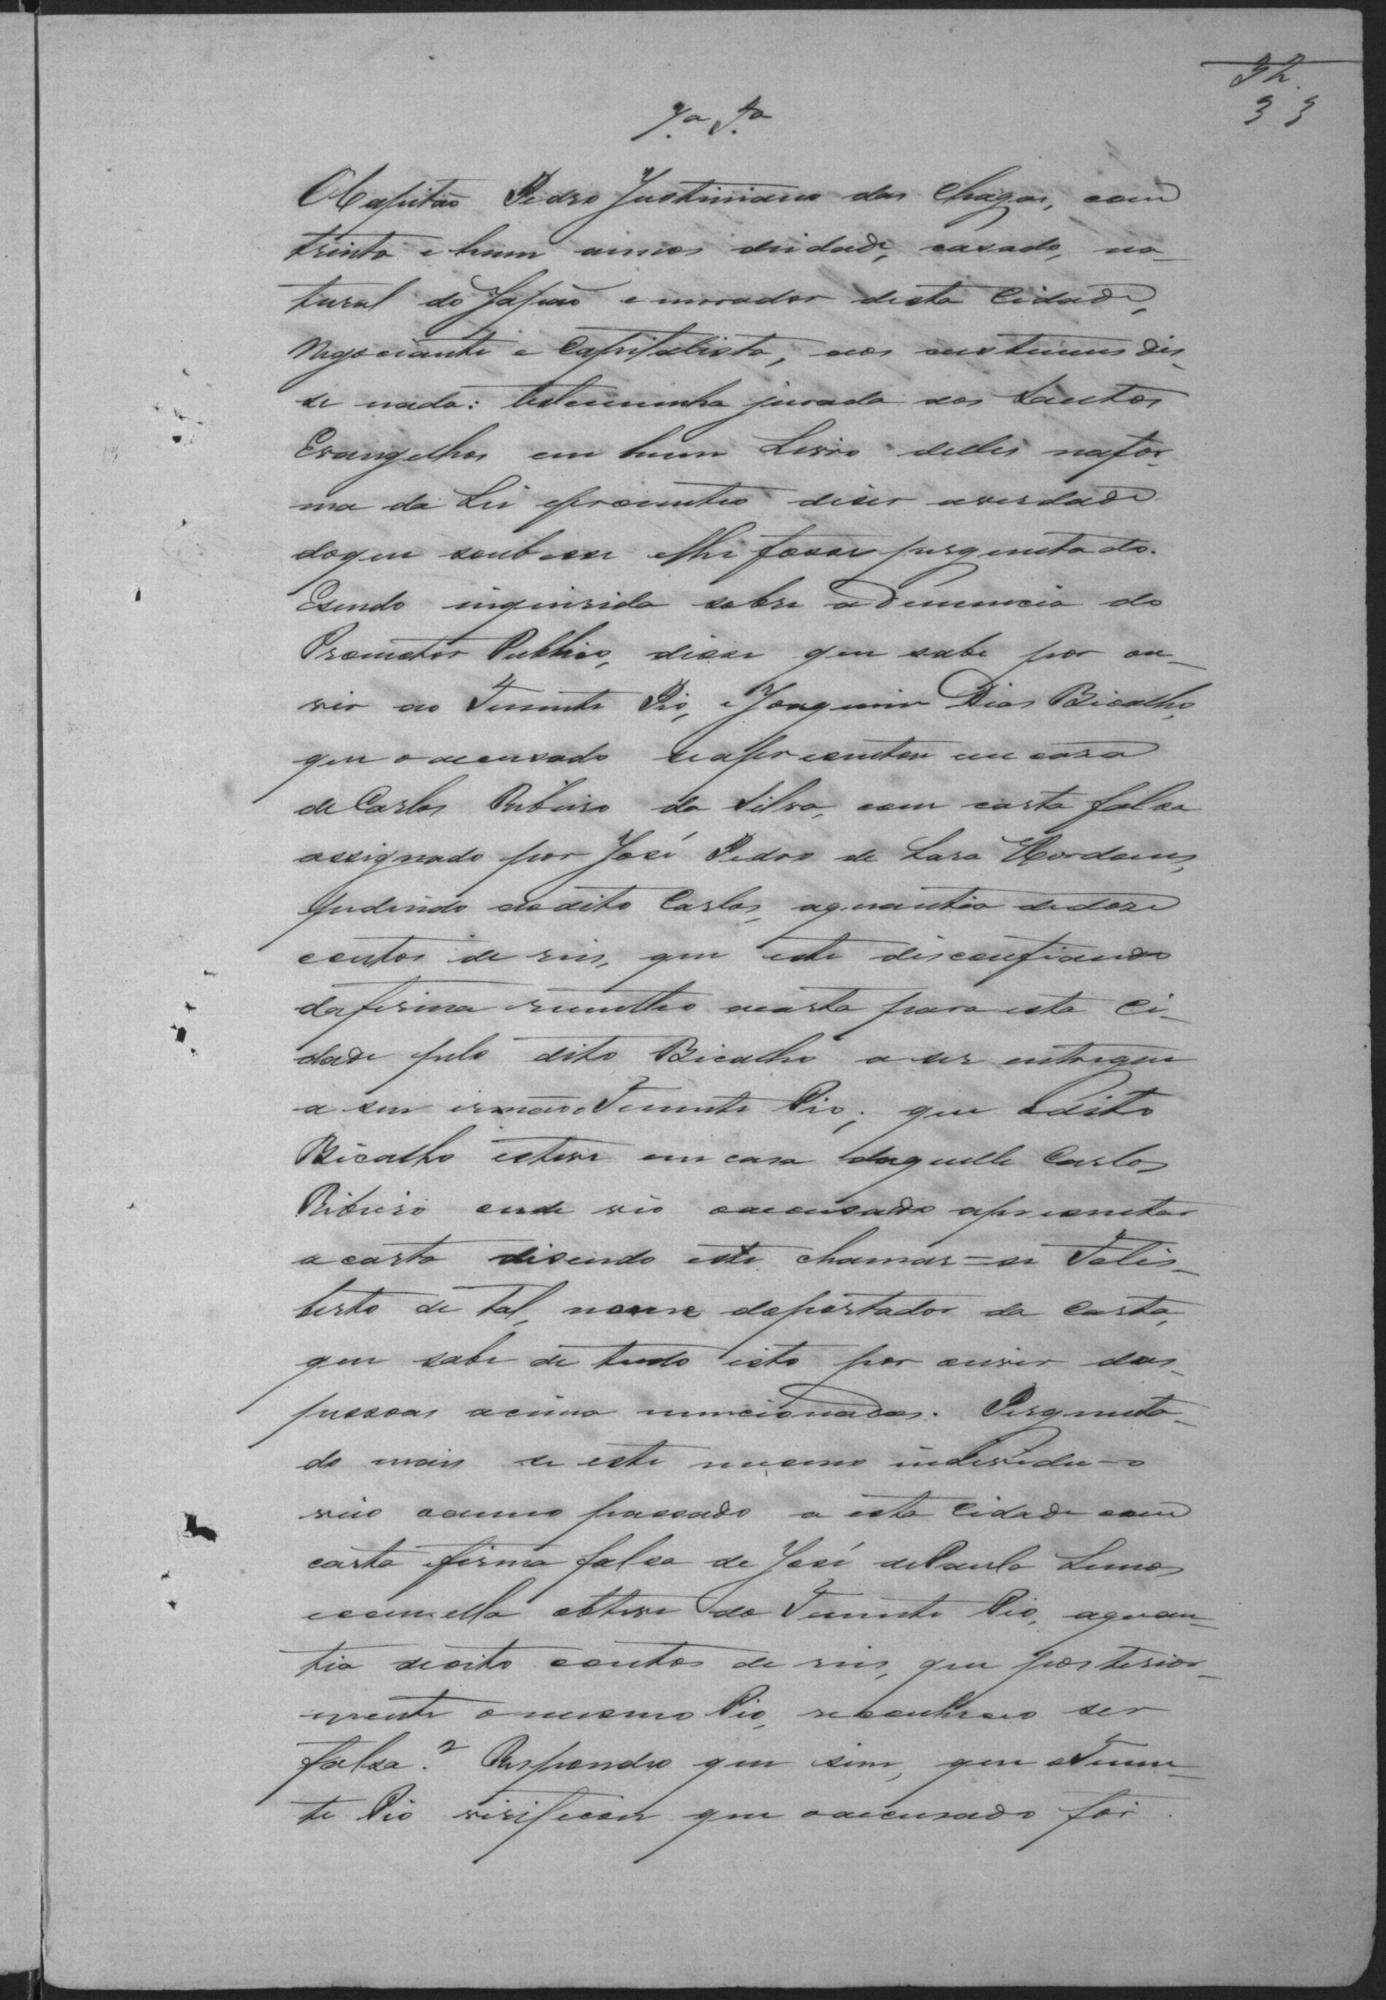 32.
33
7.a T.a
O Capitão Pedro Justiniano das Chagas, com
trinta e hum annos deidade, casado, na-
tural do Japão e morador desta Cidade,
Negociante e Capitalista, aos custumes dis-
se nada: testemunha jurada aos Santos
Evangelhos em hum Livro delles nafor-
ma da Lei eprometteo diser averdade
doque soubesse elhe fosse perguntado.
Esendo inquirida sobre a Denuncia do
Promotor Publico, disse que sabe por ou-
vir ao Tenente Pio, e Joaquim Dias Bicalho,
que oaccusado seapresentou em casa
de Carlos Ribeiro da Silva, com carta falsa
assignado por José Pedro de Lara
pedindo aodito Carlos, aquantia dedoze
contos de reis, que este disconfiando
dafirma remetteo acarta para esta Ci-
dade pelo dito Bicalho a ser entregue
a seu irmão o Tenente Pio; que odito
Bicalho esteve em casa daquelle Carlos
Ribeiro onde vio oaccusado apresentar
a carta disendo este chamar-se Felis-
berto de tal, nome doportador da carta,
que sabe de tudo isto por ouvir das
pessoas acima mencionadas. Pergunta-
do mais se este mesmo individu-o
veio oanno passado a esta Cidade com
carta efirma falsa de José dePaula Lemos
ecomella obteve do Tenente Pio, aquan-
tia deoito contos de reis, que posterior-
mente omesmo Pio, reconheceo ser
falsa? Respondeo que sim, que oTenen-
te Pio verificou que oaccusado foi